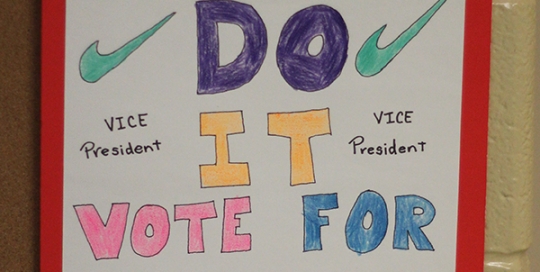 DO
VICE President IT VICE President
VOTE FOR